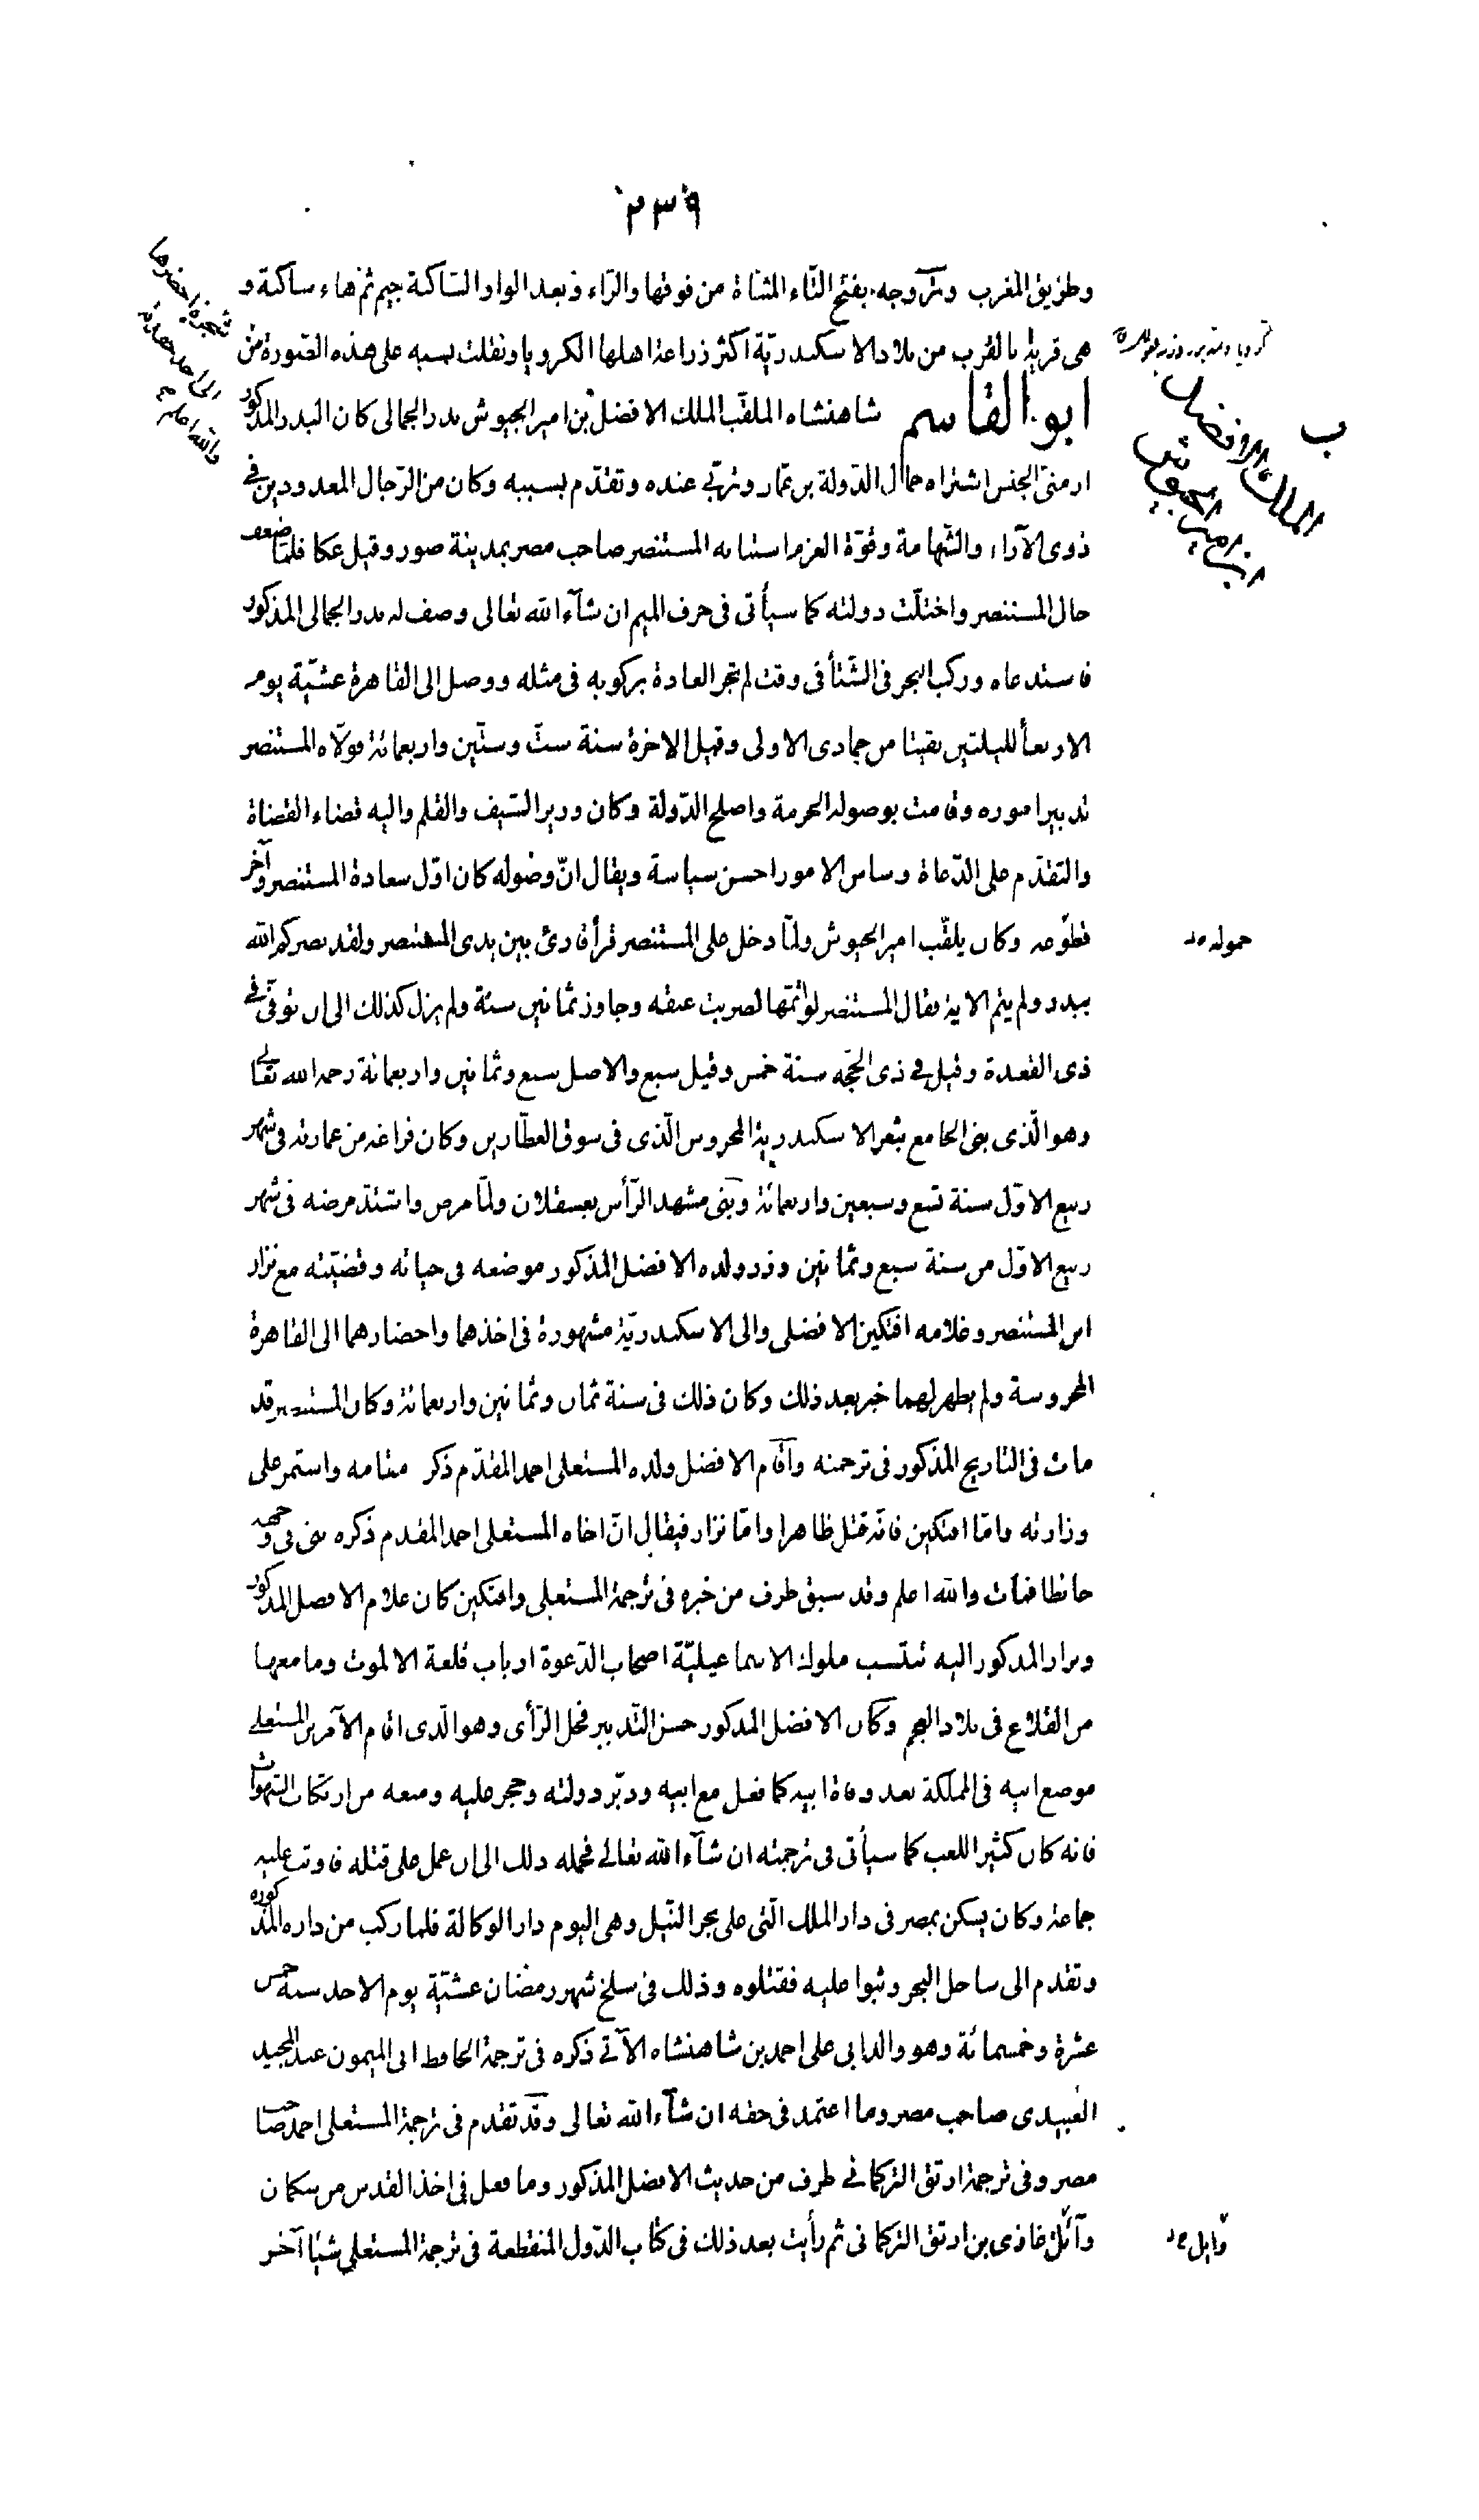 ٢٣٩
وطريق المغرب وتروجه بفتح التّاء المثنّاة من فوقها والرّاء وبعد الواو السّاكنة جيم ثم هاء ساكنة و
هى قرية بالقرب من بلاد الاسكندريّة اكثر زراعة اهلها الكرويا ونقلت نسبه على هذه الصّورة من
شجرة احضرها
الىّ احد حفدته
والله اعلم
ابو القاسم شاهنشاه الملقّب الملك الافضل بن امير الجيوش بدر الجمالى كان البدر المذكور
ب
الملك الافضل
ابن امير الجيوش
ارمنىّ الجنس اشتراه جمال الدّولة بن عمّار وتربّى عنده وتقدّم بسببه وكان من الرّجال المعدودين فى
ذوى الآراء والشّهامة وقوّة العزم استنابه المستنصر صاحب مصر بمدينة صور وقيل عكا فلمّا ضعف
حال المستنصر واختلّت دولته كما سيأتى فى حرف الميم ان شآء الله تعالى وصف له بدر الجمالى المذكور
فاستدعاه وركب البحر فى الشّتأ فى وقت لم تجر العادة بركوبه فى مثله ووصل الى القاهرة عشيّة يوم
الاربعأ لليلتين بقيتا من جمادى الاولى وقيل الاخرة سنة ستّ وستّين واربعمائة فولّاه المستنصر
تدبير اموره وقامت بوصوله الحرمة واصلح الدّولة وكان وزير السّيف والقلم واليه قضاء القضاة
والتقدّم على الدّعاة وساس الامور احسن سياسة ويقال انّ وصوله كان اوّل سعادة المستنصر وآخر
قطوعه وكان يلقّب امير الجيوش ولمّا دخل على المستنصر قرأ قارئ بين يدى المستنصر ولقد نصركم الله
حموله صد
ببدر ولم يتم الاية فقال المستنصر لو اتمّها لضربت عنقه وجاوز ثمانين سنة ولم يزل كذلك الى ان توفّى فى
ذى القعدة وقيل فى ذى الحجّه سنة خمس وقيل سبع والاصل سبع وثمانين واربعمائة رحمه الله تعالى
وهو الّذى بنى الجامع بثغر الاسكندرية المحروس الّذى فى سوق العطّارين وكان فراغه من عمارته فى شهر
ربيع الاوّل سنة تسع وسبعين واربعمائة وبنى مشهد الرّأس بعسقلان ولمّا مرض واشتدّ مرضه فى شهر
ربيع الاوّل من سنة سبع وثمانين وزر ولده الافضل المذكور موضعه فى حياته وقضيّته مع نزار
ابن المستنصر وغلامه افتكين الافضلى والى الاسكندريّة مشهورة فى اخذهما واحضارهما الى القاهرة
المحروسة ولم يظهر لهما خبر بعد ذلك وكان ذلك فى سنة ثمان وثمانين واربعمائة وكان المستنصر قد
مات فى التاريخ المذكور فى ترجمته واقام الافضل ولده المستعلى احمد المقدّم ذكر مقامه واستمر على
وزارته وامّا افتكين فانّه قتل ظاهرا وامّا نزار فيقال انّ اخاه المستعلى احمد المقدم ذكره بنى فى وجهه
حائطا فمات والله اعلم وقد سبق طرف من خبره فى ترجمة المستعلى وافتكين كان غلام الافضل المذكور
ونزار المذكور اليه تنتسب ملوك الاسماعيليّة اصحاب الدّعوة ارباب قلعة الالموت وما معها
من القلاع فى بلاد العجم وكان الافضل المذكور حسن التّدبير فحل الرّأى وهو الّذى اقام الآمر بن المستعلى
موضع ابيه فى المملكة بعد وفاة ابيه كما فعل مع ابيه ودبّر دولته وحجر عليه ومنعه من ارتكاب الشهوات
فانه كان كثير اللعب كما سيأتى فى ترجمته ان شآء الله تعالى فحمله ذلك الى ان عمل على قتله فاوثب عليه
جماعة وكان يسكن بمصر فى دار الملك الّتى على بحر النّيل وهى اليوم دار الوكالة فلما ركب من داره المذكوره
وتقدم الى ساحل البحر وثبوا عليه فقتلوه وذلك فى سلخ شهر رمضان عشيّة يوم الاحد سنة خمس
عشرة وخمسمائة وهو والد ابى على احمد بن شاهنشاه الآتى ذكره فى ترجمة الحافظ ابى الميمون عبد المجيد
العُبيدى صاحب مصر وما اعتمد فى حقه ان شآء الله تعالى وقد تقدم فى ترجمة المستعلى احمد صاحب
مصر وفى ترجمة ارتق التركمانى طرف من حديث الافضل المذكور وما فعل فى اخذ القدس من سكمان
وآئل غازى بن ارتق التركمانى ثم رأيت بعد ذلك فى كتاب الدّول المنقطعة فى ترجمة المستعلى شيئا آخر
وايل صد